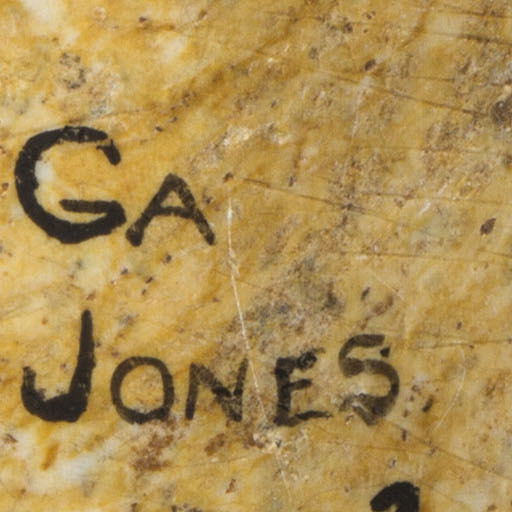 GA
JONES